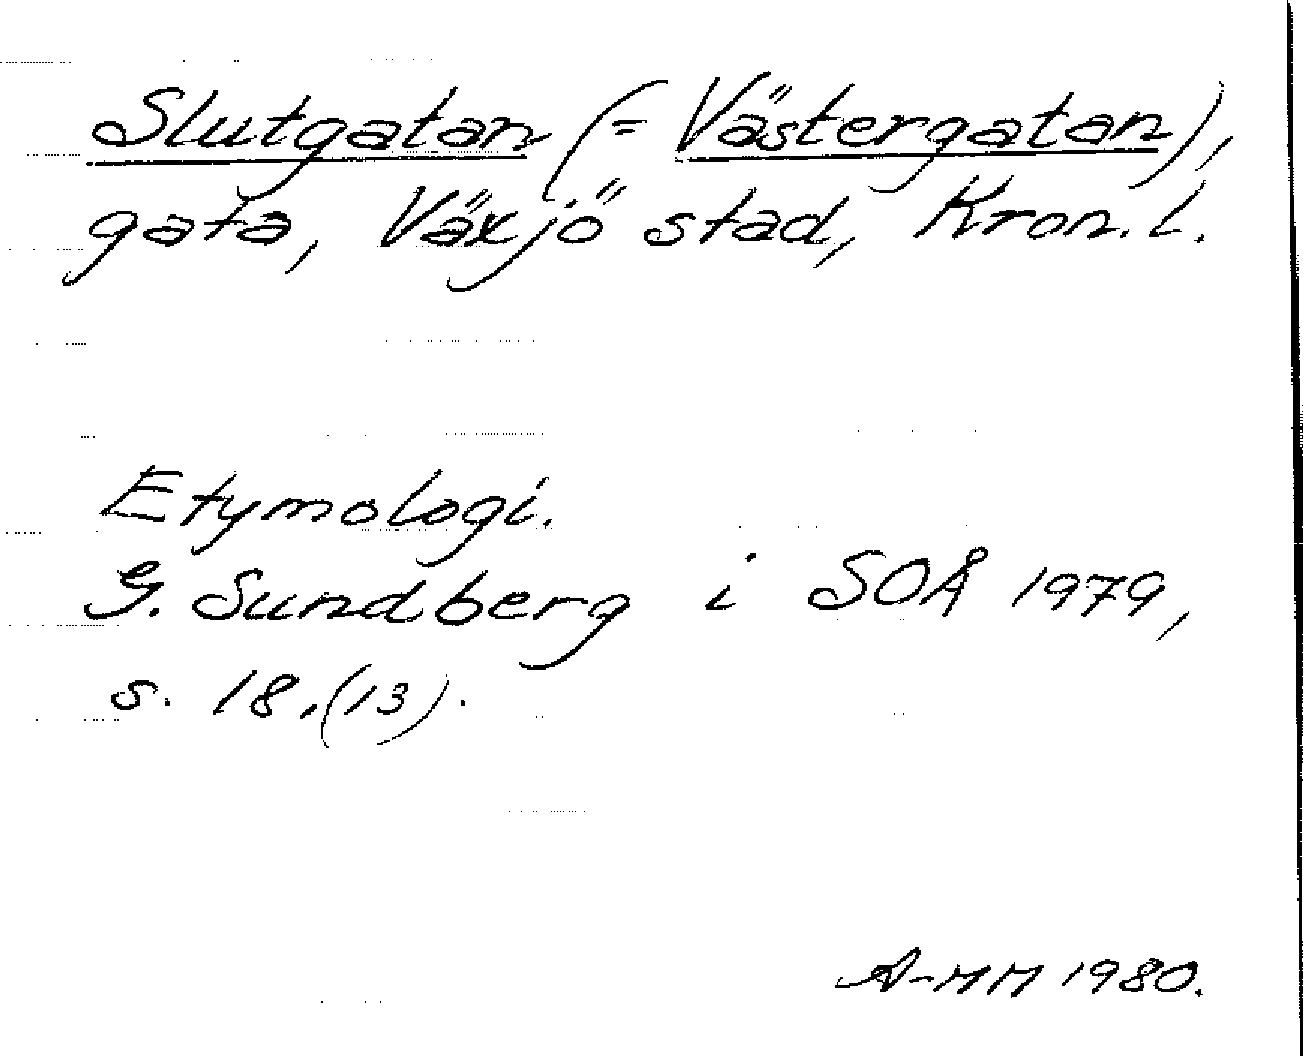 Slutgatan (= Västergatan),
gata, Växjö stad, Kron. l.
Etymologi.
G. Sundberg i SOÅ 1979,
s. 18, (13).
A-MM 1980.